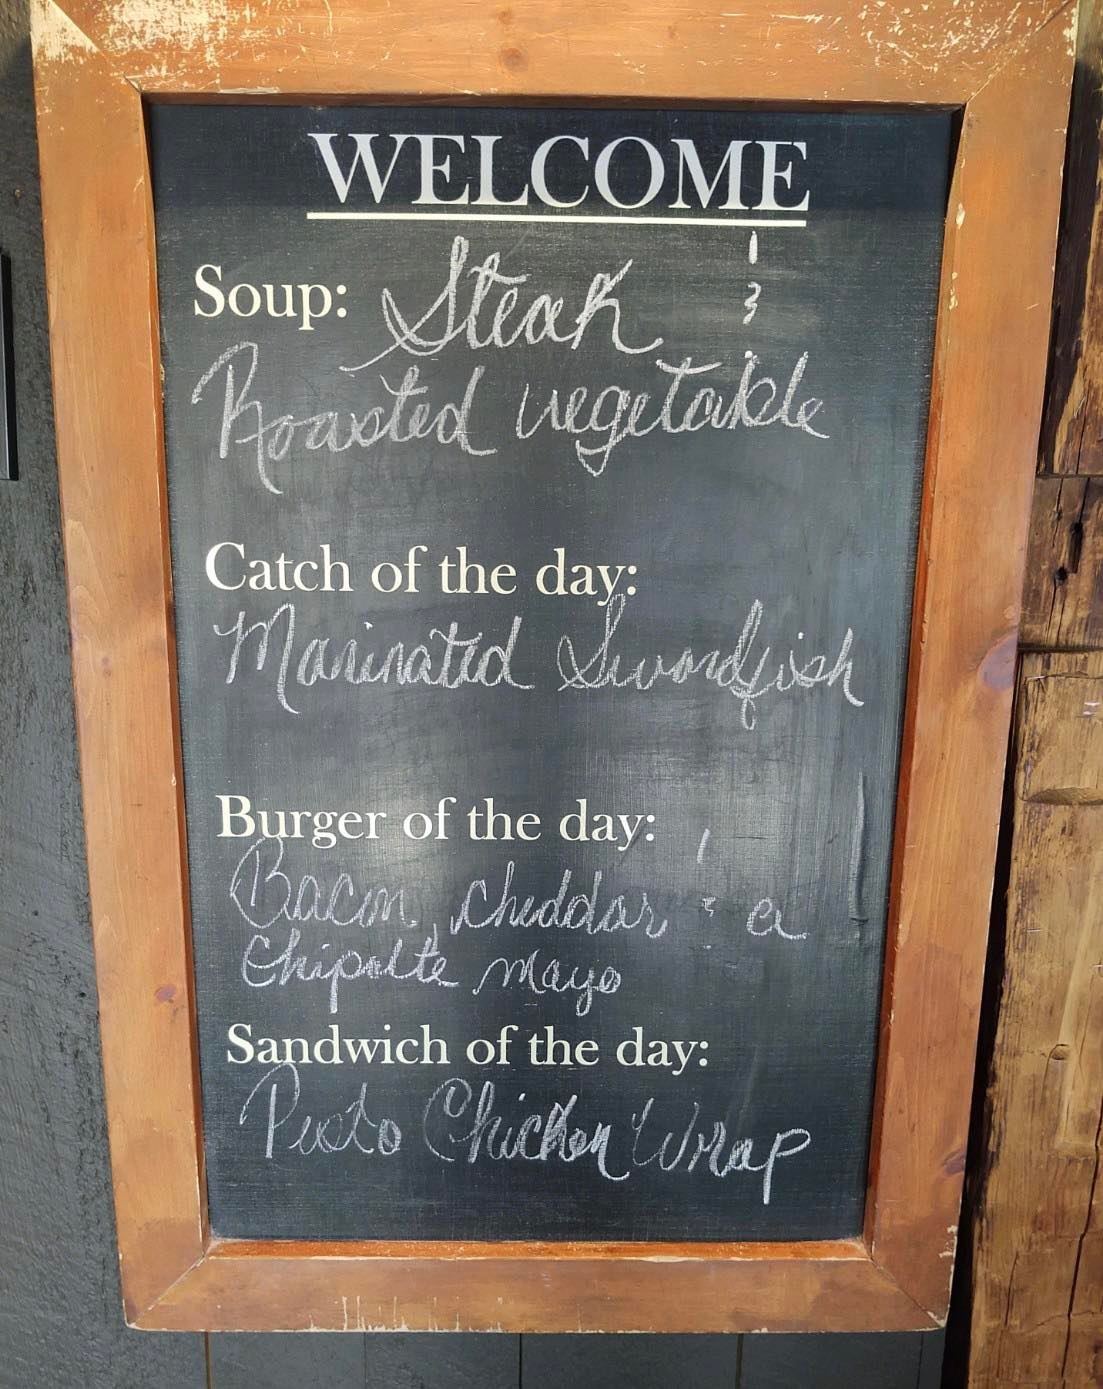 WELCOME
Soup: Steak &
Roasted vegetable
Catch of the day:
Marinated Swordfish
Burger of the day:
Bacon, cheddar & a
Chipolte mayo
Sandwich of the day:
Pesto Chicken Wrap